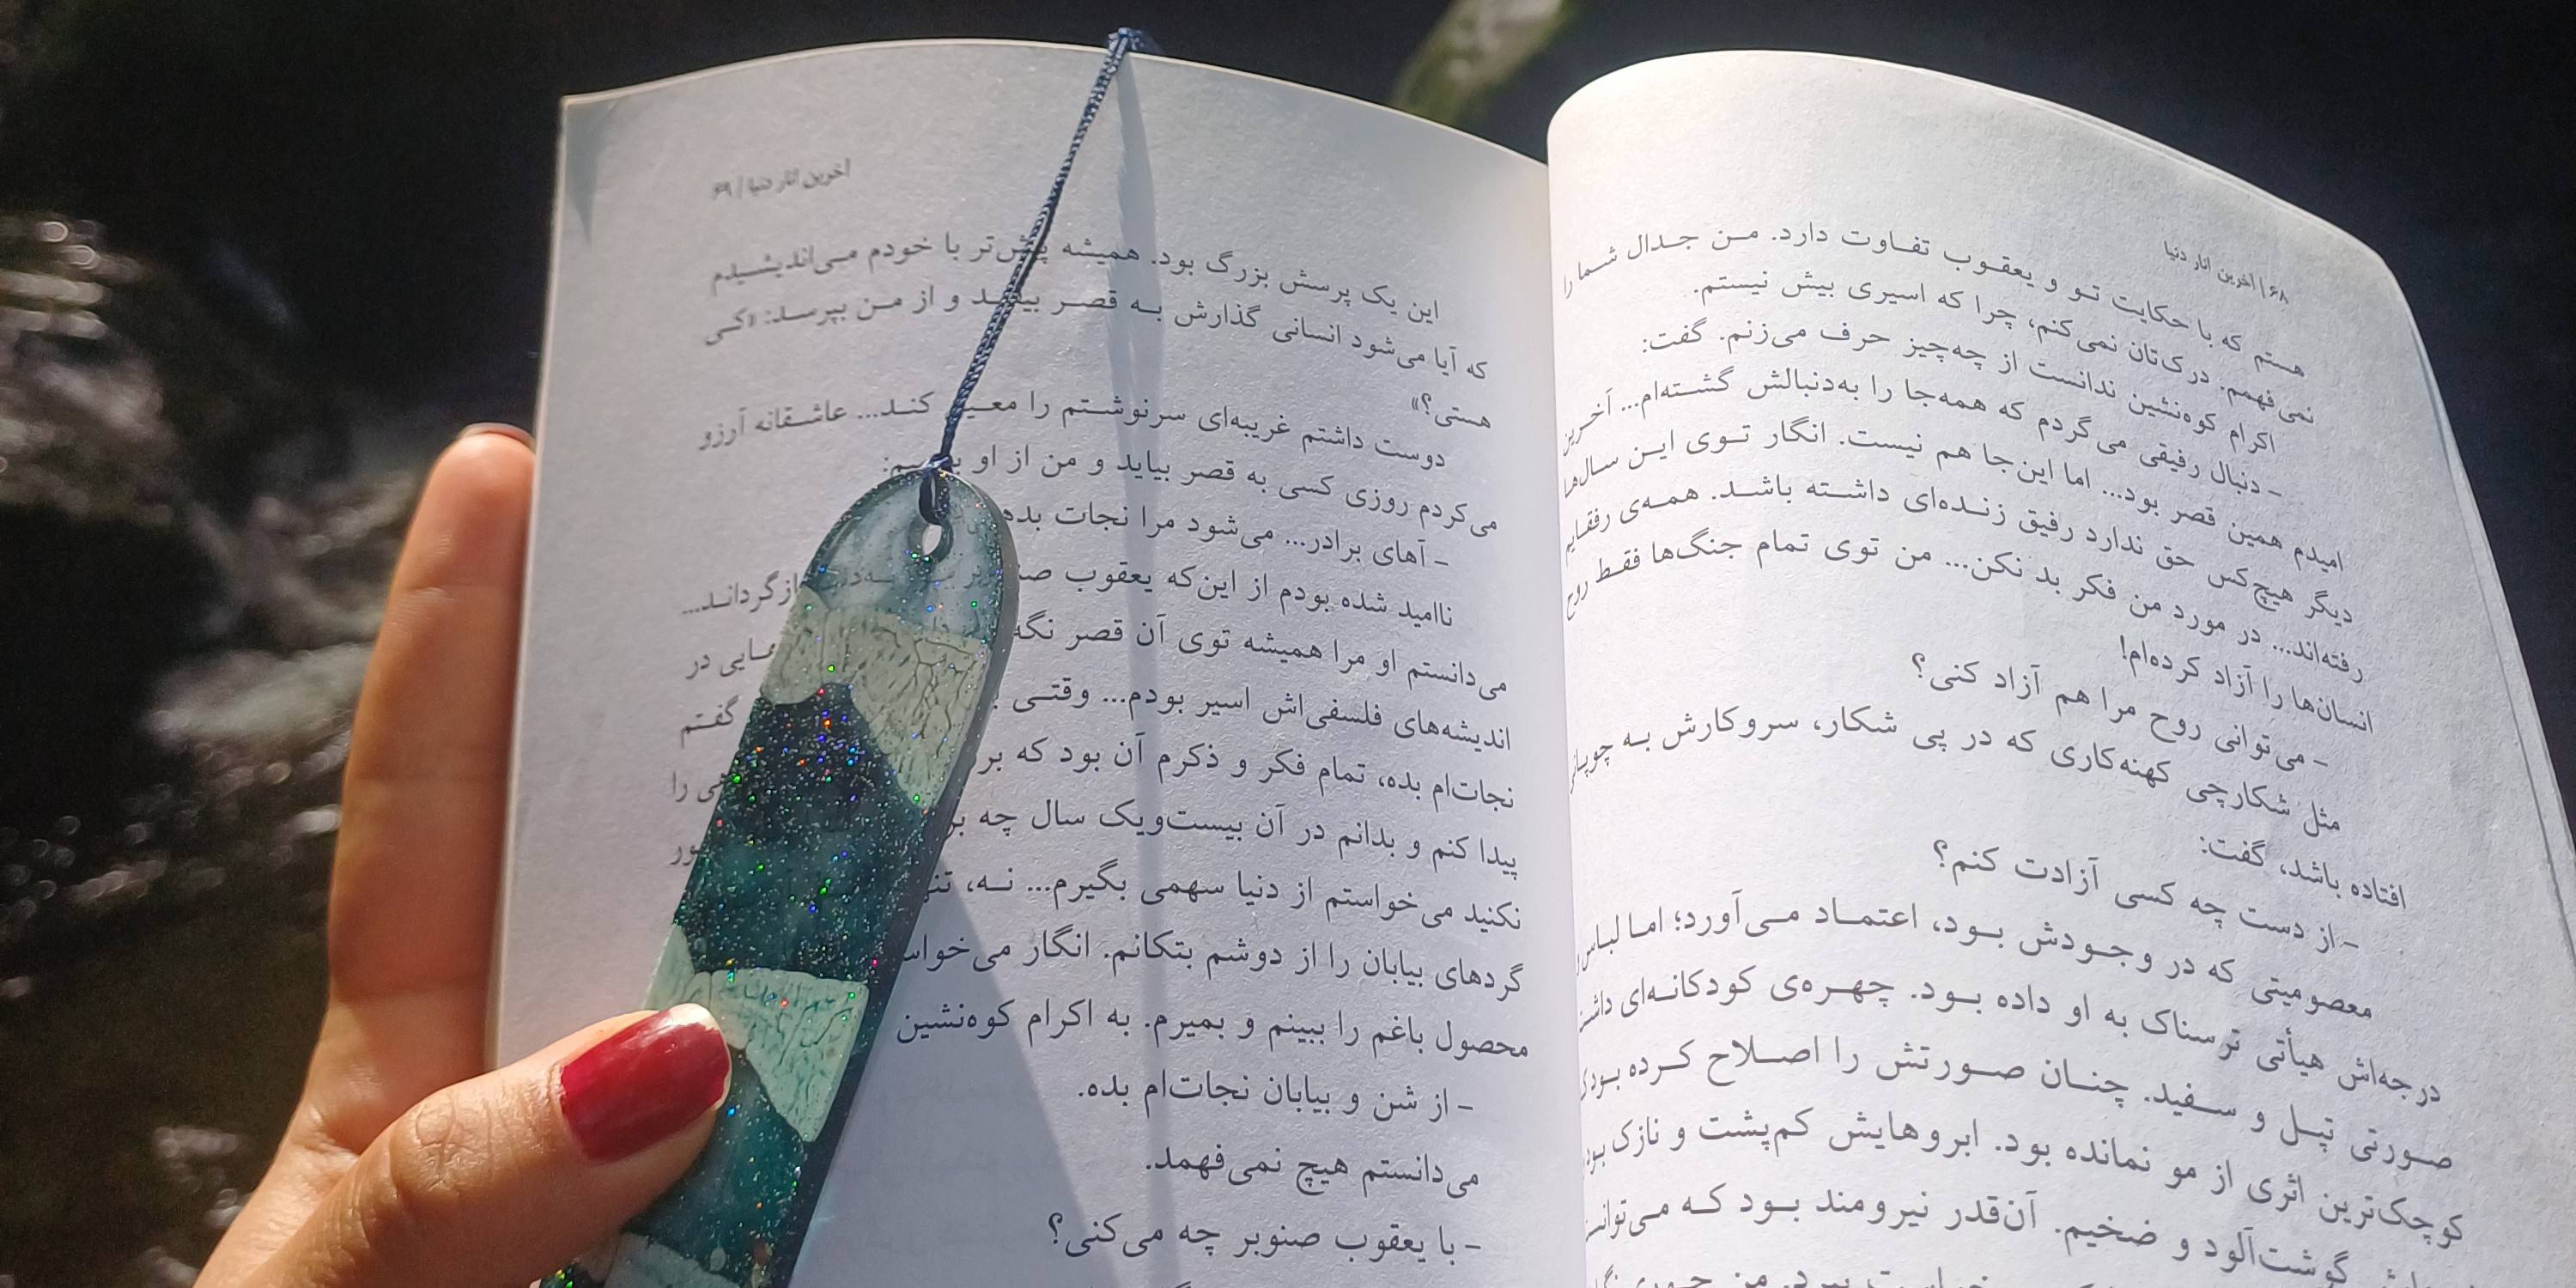 ۶۸ | آخرین انار دنیا
هستم که با حکایت تو و یعقوب تفاوت دارد. من جدال شما را
نمی‌فهمم. درک‌تان نمی‌کنم، چرا که اسیری بیش نیستم.
اکرام کوه‌نشین ندانست از چه‌چیز حرف می‌زنم. گفت:
- دنبال رفیقی می‌گردم که همه‌جا را به‌دنبالش گشته‌ام... آخرین
امیدم همین قصر بود... اما این‌جا هم نیست. انگار توی این سال‌ها
دیگر هیچ‌کس حق ندارد رفیق زنده‌ای داشته باشد. همه‌ی رفقایم
رفته‌اند... در مورد من فکر بد نکن... من توی تمام جنگ‌ها فقط روح
انسان‌ها را آزاد کرده‌ام!
- می‌توانی روح مرا هم آزاد کنی؟
مثل شکارچی کهنه‌کاری که در پی شکار، سروکارش به چوپانی
افتاده باشد، گفت:
- از دست چه کسی آزادت کنم؟
معصومیتی که در وجودش بود، اعتماد می‌آورد؛ اما لباس
درجه‌اش هیأتی ترسناک به او داده بود. چهره‌ی کودکانه‌ای
صورتی تپل و سفید. چنان صورتش را اصلاح کرده بود
کوچک‌ترین اثری از مو نمانده بود. ابروهایش کم‌پشت و نازک
گوشت‌آلود و ضخیم. آن‌قدر نیرومند بود که
آخرین انار دنیا | ۶۹
این یک پرسش بزرگ بود. همیشه پیش‌تر با خودم می‌اندیشیدم
که آیا می‌شود انسانی گذارش به قصر بیفتد و از من بپرسد: «کی
هستی؟»
دوست داشتم غریبه‌ای سرنوشتم را معین کند... عاشقانه آرزو
می‌کردم روزی کسی به قصر بیاید و من از او
- آهای برادر... می‌شود مرا نجات
ناامید شده بودم از این‌که یعقوب
می‌دانستم او مرا همیشه توی آن قصر در
اندیشه‌های فلسفی‌اش اسیر بودم... وقتی گفتم
نجات‌ام بده، تمام فکر و ذکرم آن بود که را
پیدا کنم و بدانم در آن بیست‌ویک سال چه
نکنید می‌خواستم از دنیا سهمی بگیرم... نه،
گردهای بیابان را از دوشم بتکانم. انگار
محصول باغم را ببینم و بمیرم. به اکرام کوه‌نشین
- از شن و بیابان نجات‌ام بده.
می‌دانستم هیچ نمی‌فهمد.
- با یعقوب صنوبر چه می‌کنی؟